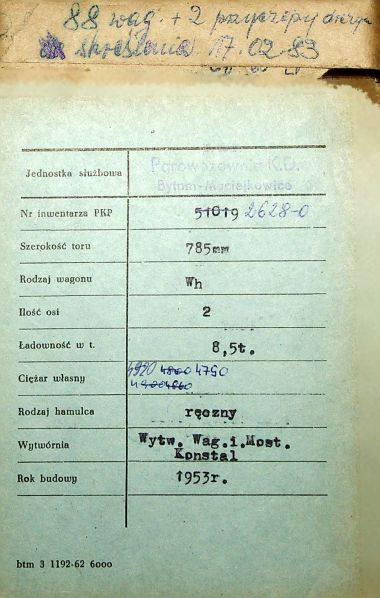 88 wag. + 2 przyczepy
skreślenia 17.02.83
Jednostka służbowa
Parowozownia K.D.
Bytom-Maciejkowice
Nr inwentarza PKP 51019 2628-0
Szerokość toru 785mm
Rodzaj wagonu Wh
Ilość osi 2
Ładowność w t. 8,5t.
Ciężar własny 4920 4800 4790
Rodzaj hamulca ręczny
Wytwórnia Wytw. Wag.i.Most.
Konstal
Rok budowy 1953r.
btm 3 1192-62 6000